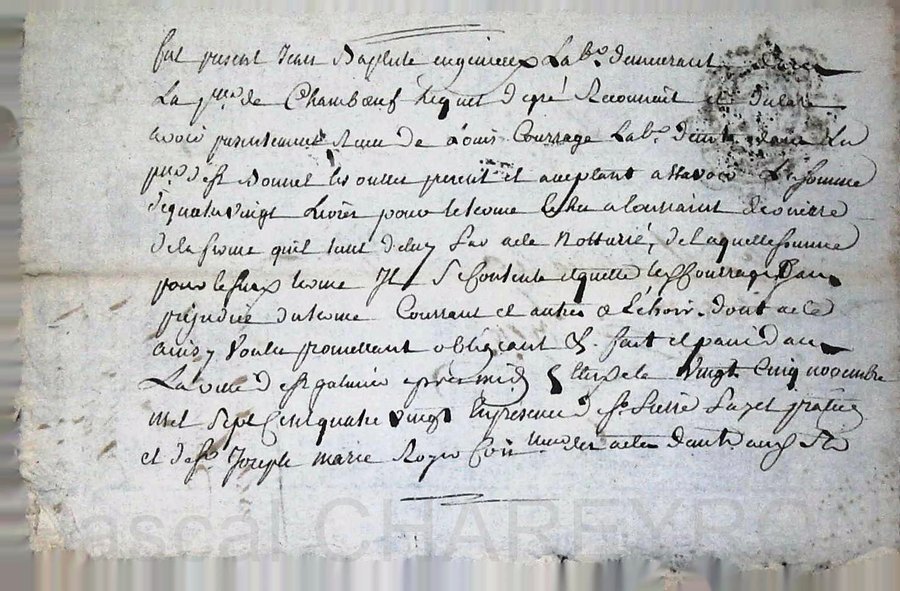 fut present Jean Baptiste enginieux Lab.r demeurant
La p.sse de Chambœuf Lequel de gré Reconnoit et declare
avoir presentement Receu de Louis Courrage Lab.r
p.sse de st Bonnet les oulles present et acceptant a Sçavoir La Somme
de quatre vingt Livres pour le terme
de la ferme quil tient de luy par acte Notturié, de Laquelle Somme
pour le susd terme Il Se Contente et quitte led Courrage Sans
prejudice du terme Courrant et autres a Echoir. dont acte
ainsy Voulu promettant obligeant &. fait et passé dans
La ville de st galmier apres midy Le vingt Cinq novembre
mil Sept Cent quatre vingt En presence de sr pierre praticien
et de sr Joseph marie Royer
Pascal CHAREYRON